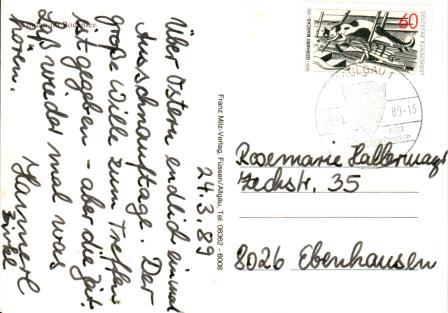 24.3.89
Über Ostern endlich einmal
Ausschnauftage. Der
große Wille zum Treffen
ist gegeben - aber die Zeit.
Laß wieder mal was
hören.
Franz Milz-Verlag, Füssen/Allgäu, Tel. 08362 - 6008
60
DEUTSCHE BUNDESPOST
89-13
Rosemarie Hallerwagt
Zechstr. 35
8026 Ebenhausen